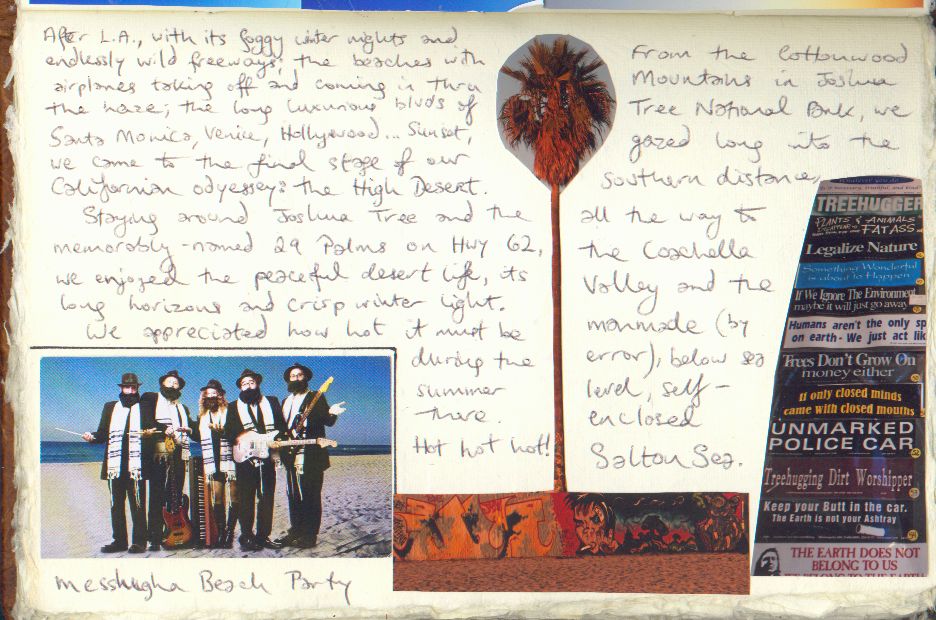 After L.A., with its foggy winter nights and
endlessly wild freeways; the beaches with
airplanes taking off and coming in thru
the haze; the long luxurious blvds of
Santa Monica, Venice, Hollywood... Sunset,
we came to the final stage of our
Californian odyssey: the High Desert.
Staying around Joshua Tree and the
memorably-named 29 Palms on Hwy 62,
we enjoyed the peaceful desert life, its
long horizons and crisp winter light.
We appreciated how hot it must be
during the
summer
there.
Hot hot hot!
From the Cottonwood
Mountains in Joshua
Tree National Park, we
gazed long into the
southern distance,
all the way to
the Coachella
Valley and the
manmade (by
error), below sea
level, self-
enclosed
Salton Sea.
Messhugha Beach Party
TREEHUGGER
PLANTS & ANIMALS
FAT ASS
Legalize Nature
Something Wonderful
is about to Happen
If We Ignore The Environment
maybe it will just go away
Humans aren't the only sp
on earth - We just act lik
Trees Don't Grow On
money either
If only closed minds
came with closed mouths
UNMARKED
POLICE CAR
Treehugging Dirt Worshipper
Keep your Butt in the car.
The Earth is not your Ashtray
THE EARTH DOES NOT
BELONG TO US